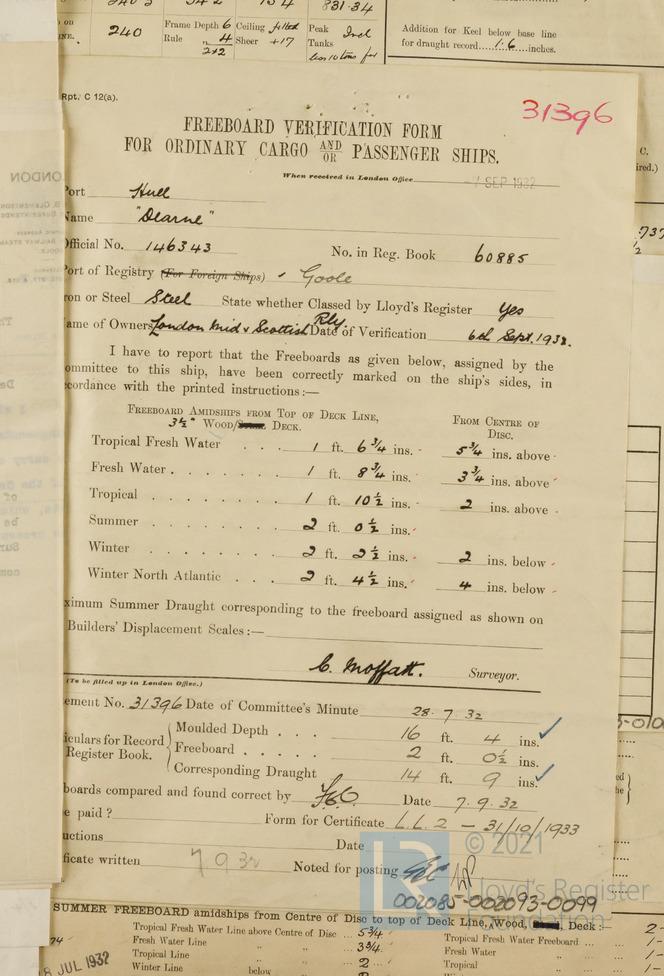 240
Frame Depth 6 Ceiling fitted
Rule " 4 Sheer +17
2x2
Peak Incl
Tanks
less 10 tons for
831.34
Addition for Keel below base line
for draught record....1.6....inches.
Rpt. C 12(a).
31396
FREEBOARD VERIFICATION FORM
FOR ORDINARY CARGO AND/OR PASSENGER SHIPS.
When received in London Office 7 SEP 1932
Port Hull
Name "Dearne"
Official No. 146343 No. in Reg. Book 60885
Port of Registry (For Foreign Ships) Goole
ron or Steel Steel State whether Classed by Lloyd's Register Yes
ame of Owners London Mid & Scottish Rly. Date of Verification 6th Sept. 1932.
I have to report that the Freeboards as given below, assigned by the
ommittee to this ship, have been correctly marked on the ship's sides, in
cordance with the printed instructions:—
FREEBOARD AMIDSHIPS FROM TOP OF DECK LINE,
3½" WOOD/ DECK.
FROM CENTRE OF
DISC.
Tropical Fresh Water . . . 1 ft. 6 3/4 ins. 5 3/4 ins. above
Fresh Water . . . . . 1 ft. 8 3/4 ins. 3 3/4 ins. above
Tropical . . . . . . 1 ft. 10 1/2 ins. 2 ins. above
Summer . . . . . . 2 ft. 0 1/2 ins.
Winter . . . . . . 2 ft. 2 1/2 ins. 2 ins. below
Winter North Atlantic . . . 2 ft. 4 1/2 ins. 4 ins. below
ximum Summer Draught corresponding to the freeboard assigned as shown on
Builders' Displacement Scales:—
C. Moffatt. Surveyor.
(To be filled up in London Office.)
ement No. 31396 Date of Committee's Minute 28.7.32
iculars for Record
Register Book.
Moulded Depth . . . 16 ft. 4 ins.
Freeboard . . . . . 2 ft. 0 1/2 ins.
Corresponding Draught 14 ft. 9 ins.
boards compared and found correct by Date 7.9.32
e paid? Form for Certificate L.L.2 – 31/10/1933
uctions Date
ficate written 7 9 32 Noted for posting
© 2021
Lloyd's Register
Foundation
002085-002093-0099
SUMMER FREEBOARD amidships from Centre of Disc to top of Deck Line, Wood, Deck:—
Tropical Fresh Water Line above Centre of Disc .. 5 3/4 Tropical Fresh Water Freeboard
Fresh Water Line " 3 3/4 Fresh Water "
Tropical Line " 2 Tropical "
Winter Line below " Winter
8 JUL 1932